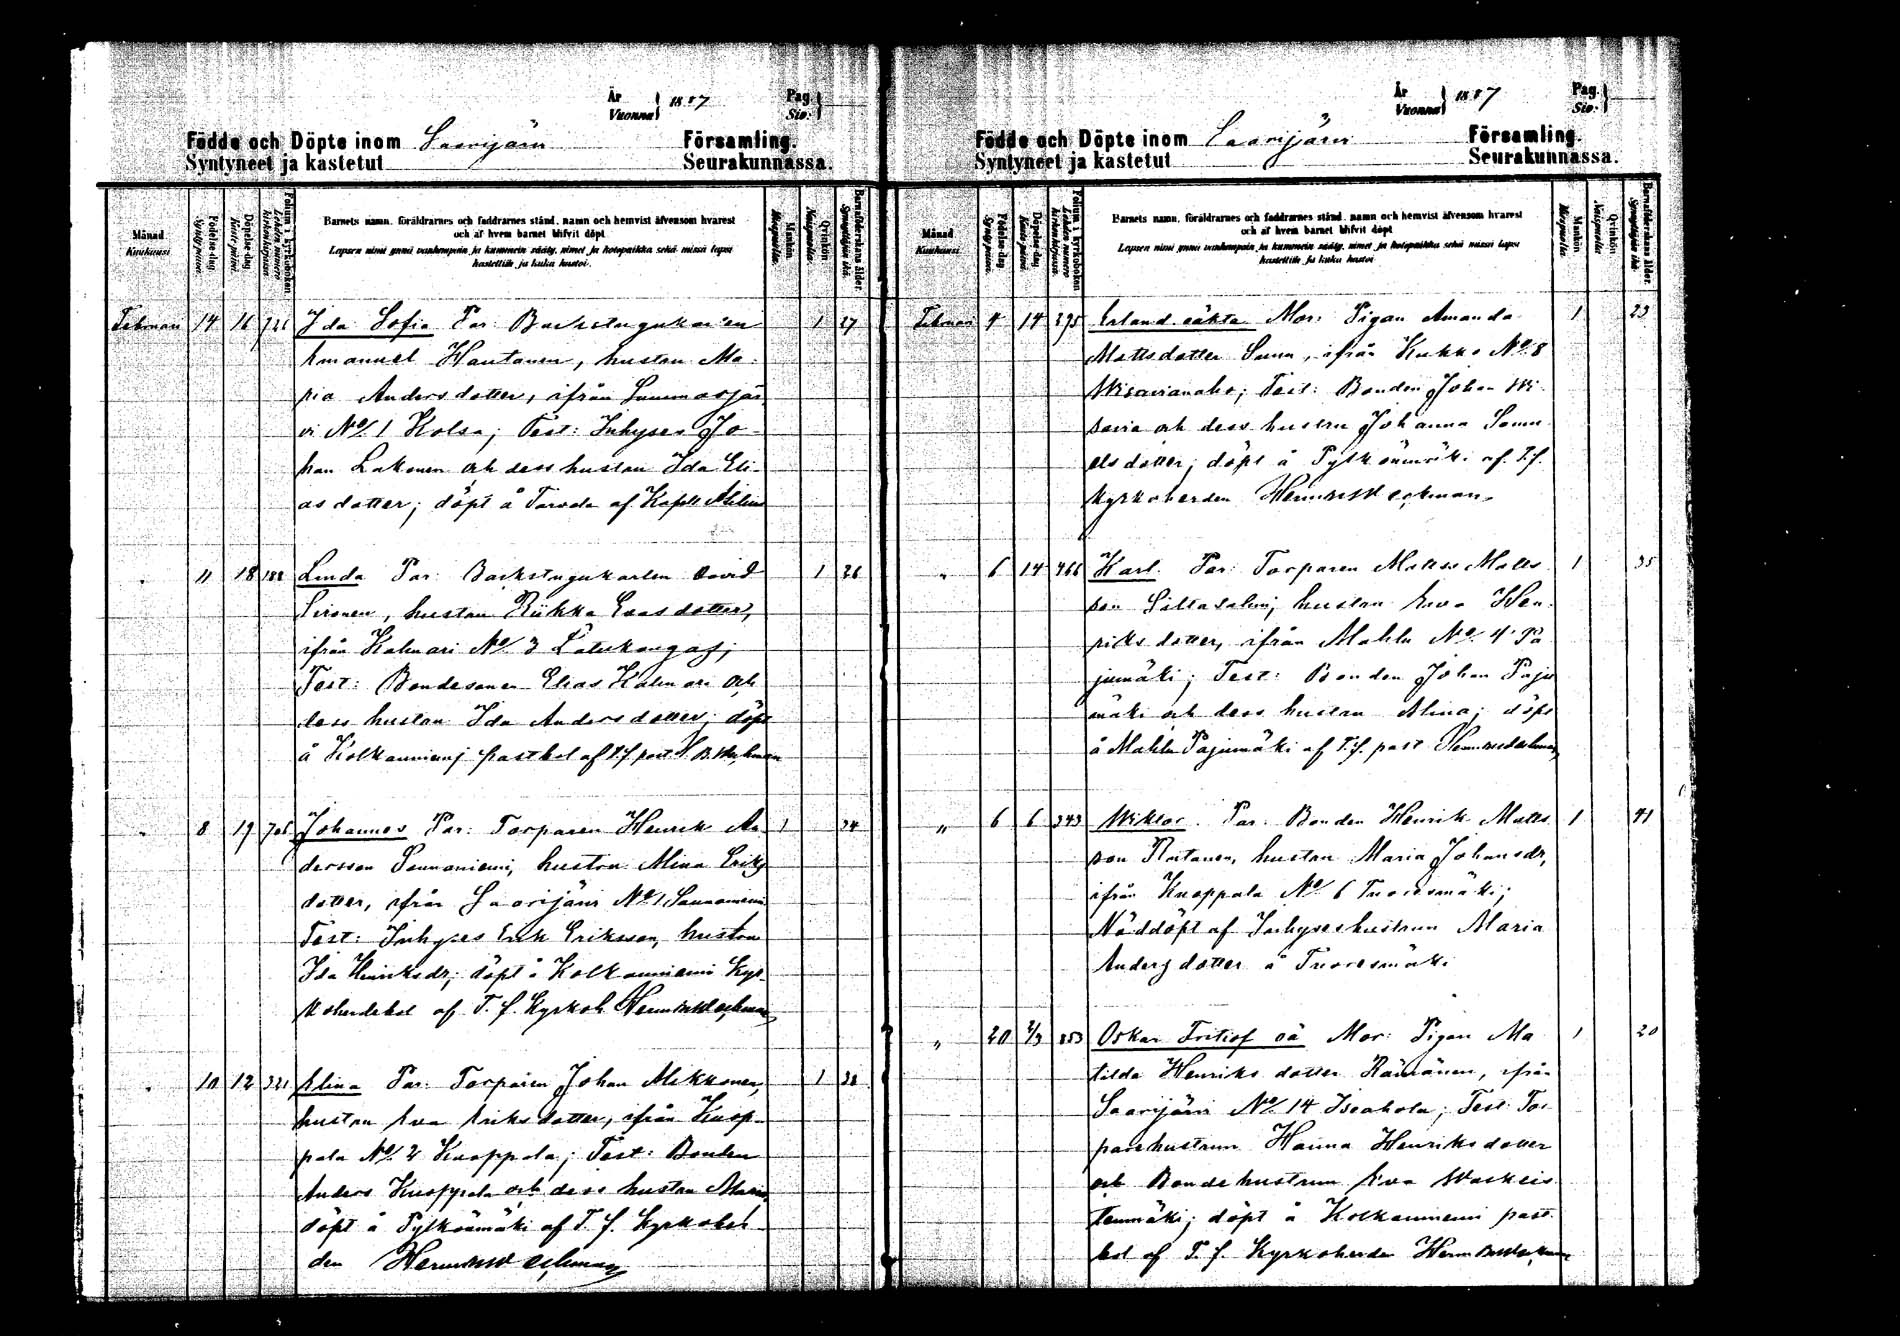 År
Vuonna } 1887
Pag.
Siv. }
Födde och Döpte inom Saarijärvi Församling.
Syntyneet ja kastetut Seurakunnassa.
Månad.
Kuukausi
Födelse-dag.
Syntympäivä.
Döpelse-dag
Kaste-päivä.
Folium i kyrkoboken
Lehden numero kirkonkirjassa.
Barnets namn, föräldrarnes och faddrarnes stånd, namn och hemvist äfvensom hvarest
och af hvem barnet blifvit döpt.
Lapsen nimi ynnä vanhempain ja kummein sääty, nimet ja kotopaikka sekä missä lapsi
kastettiin ja kuka kastoi.
Mankön
Miespuolia.
Qvinkön
Naispuolia.
Barnaföderskans ålder.
Synnyttäjän ikä.
Februari 14 16 721 Ida Sofia Par: Backstugukarlen 1 27
Emanuel Hautanen, hustru Ma-
ria Andersdotter, ifrån Lannasjär
vi No 1 Kolsa; Test: Inhyses Jo-
han Lakonen och dess hustru Ida Eli-
asdotter; döpt å Tarvala af Kapll
" 11 18 188 Linda Par: Backstugukarlen David 1 26
Sironen, hustru Riikka Evasdotter,
ifrån Kalmari No 3 Latukangas;
Test: Bondesonen Elias Kalmari och
dess hustru Ida Andersdotter; döpt
å Kolkanniemj pastbol af T.f. past H. B. Weckman
" 8 19 706 Johannes Par: Torparen Henrik An 1 34
dersson Sannaniemi, hustru Miina Eriks
dotter, ifrån Saarijärvi No 1 Sannaniemi
Test: Inhyses Erik Eriksson, hustru
Ida Henriksdr; döpt å Kolkanniemi Kyr-
koherdebol af T. f. Kyrkoh Herm B Weckman
" 10 12 321 Alina Par: Torparen Johan Mekkonen, 1 38
hustru Eva Eriksdotter, ifrån Knop-
pala No 2 Knoppala; Test: Bonden
Anders Knoppala och dess hustru Maria,
döpt å Pylkönmäki af T. f. Kyrkoher
den Herm B Weckman
År
Vuonna } 1887
Pag.
Siv. }
Födde och Döpte inom Saarijärvi Församling.
Syntyneet ja kastetut Seurakunnassa.
Månad.
Kuukausi.
Födelse-dag
Syntympäivä.
Döpelse-dag
Kaste-päivä.
Folium i kyrkoboken
Lehden numero kirkonkirjassa.
Barnets namn, föräldrarnes och faddrarnes stånd, namn och hemvist äfvensom hvarest
och af hvem barnet blifvit döpt
Lapsen nimi ynnä vanhempain ja kummein sääty, nimet ja kotopaikka sekä missä lapsi
kastettiin ja kuka kastoi
Mankön
Miespuolia.
Qvinkön
Naispuolia
Barnaföderskans ålder.
Synnyttäjän ikä.
Februari 4 14 295 Erland oäkta Mor: Pigan Amanda 1 23
Mattsdotter Sunn, ifrån Kukko No 8
Wisavianaho; Test: Bonden Johan Wi
savia och dess hustru Johanna Samu
elsdotter; döpt å Pylkönmäki af T.f.
Kyrkoherden Herm B Weckman
" 6 14 466 Karl. Par: Torparen Matts Matts 1 35
son Siltasalmi, hustru Eva Hen
riksdotter, ifrån Mahlu No 4 Pa
jumäki; Test: Bonden Johan Paju
mäki och dess hustru Alina; döpt
å Mahlu Pajumäki af T.f. past Herm B Weckman
" 6 6 343 Wiktor. Par: Bonden Henrik Matts 1 41
son Rutanen, hustru Maria Johansdr,
ifrån Knoppala No 6 Tuoresmäki;
Nöddöpt af Inhyseshustrun Maria
Andersdotter å Tuoresmäki
" 20 2/3 853 Oskar Fritiof oä Mor: Pigan Ma 1 20
tilda Henriksdotter Räisänen, ifrån
Saarijärvi No 14 Iso Ahola; Test: Tor
parehustrun Hanna Henriksdotter
och Bondehustrun Eva Waskeis
tenmäki; döpt å Kolkanniemi past
bol af T. f. Kyrkoherden Herm B Weckman